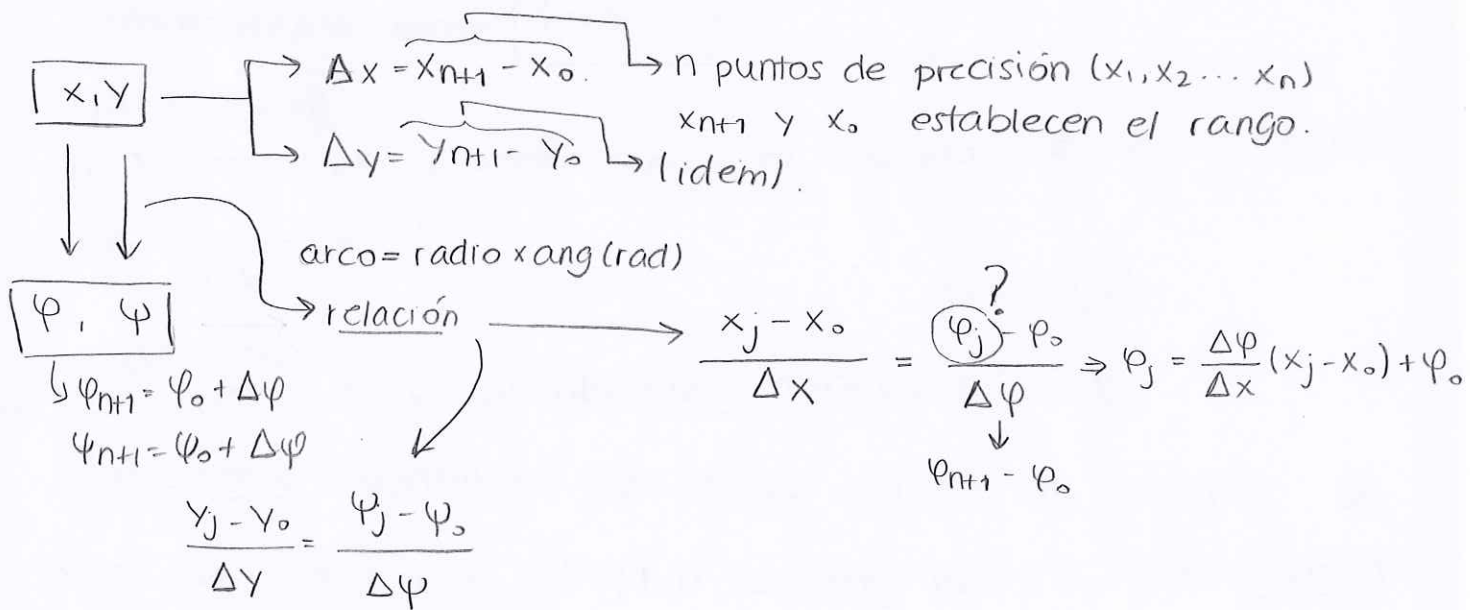 x, y
Δx = x_{n+1} - x_0. → n puntos de precisión (x_1, x_2 ... x_n)
x_{n+1} y x_0 establecen el rango.
Δy = y_{n+1} - y_0 → (idem).
arco = radio x ang (rad)
φ, ψ
relación
\frac{x_j - x_0}{Δx} = \frac{φ_j - φ_0}{Δφ} ⇒ φ_j = \frac{Δφ}{Δx} (x_j - x_0) + φ_0
?
↓
φ_{n+1} - φ_0
↳ φ_{n+1} = φ_0 + Δφ
ψ_{n+1} = ψ_0 + Δψ
\frac{y_j - y_0}{Δy} = \frac{ψ_j - ψ_0}{Δψ}